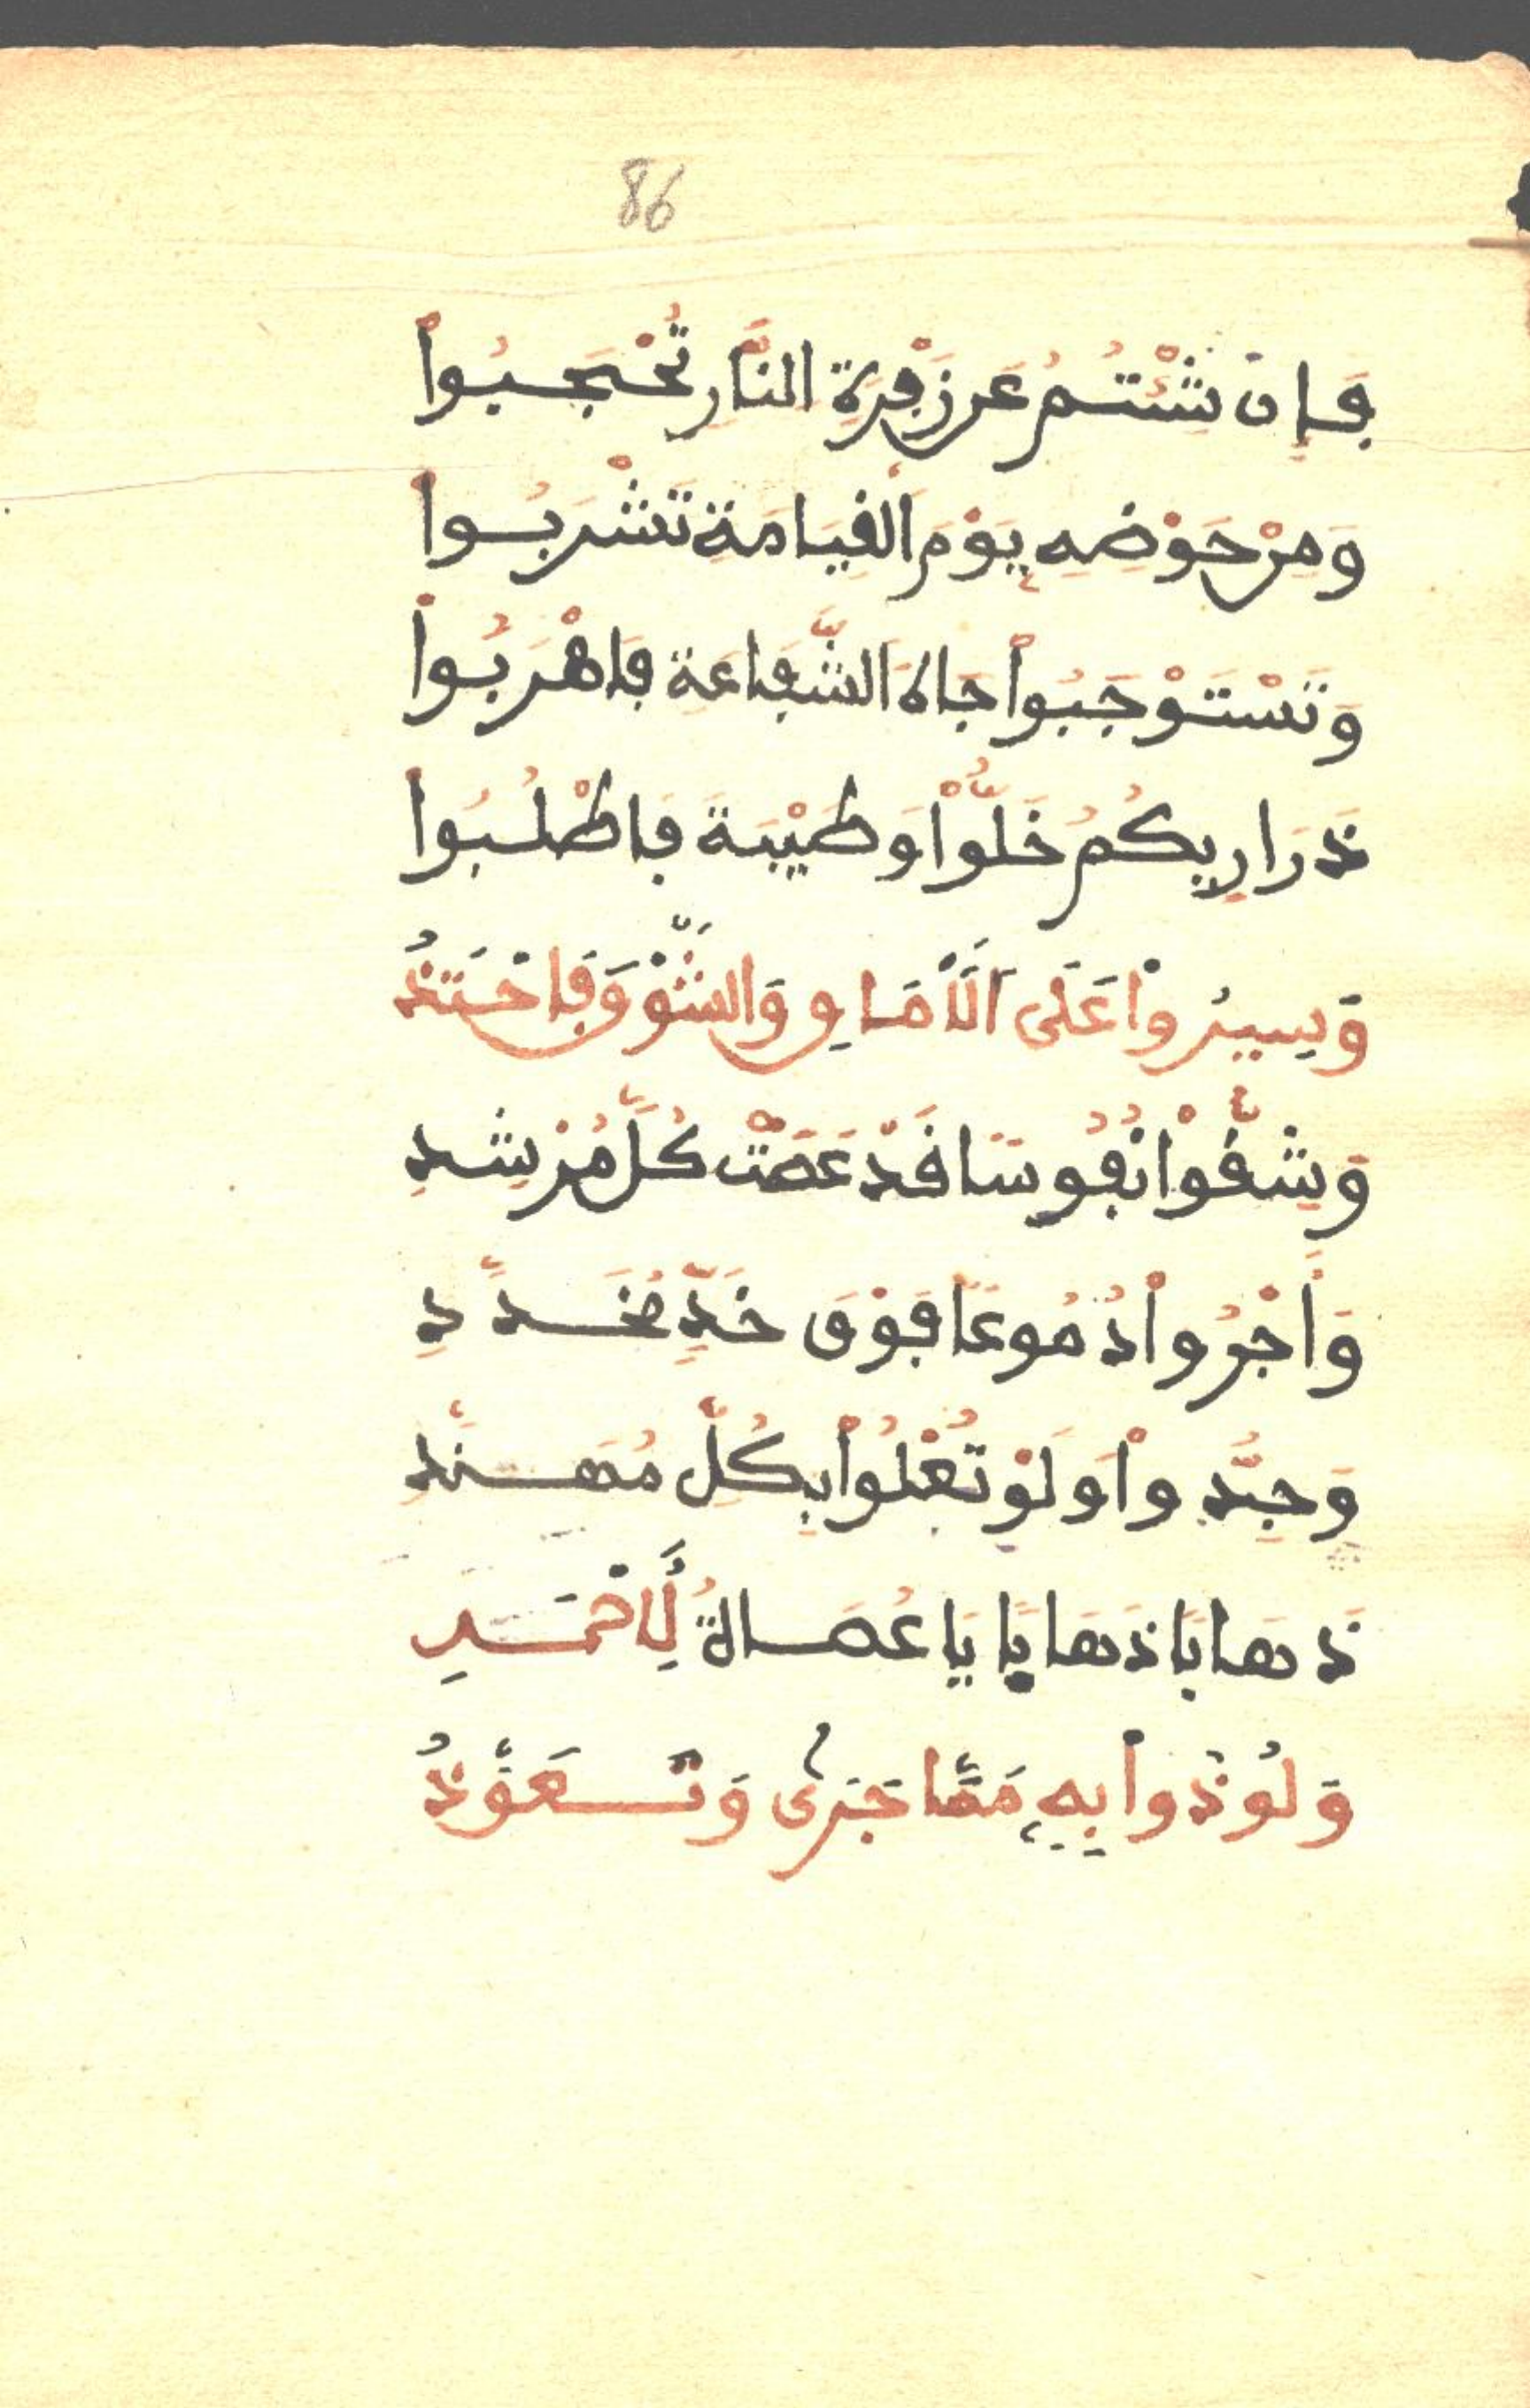 86
فَإِن شِئْتُمُ عَن زَفْرَةِ النَّارِ تُحْجَبُواْ
وَمِنْ حَوْضِهِ يَوْمَ الْقِيَامَةِ تَشْرَبُواْ
وَتَسْتَوْجِبُواْ جَاهَ الشَّفَاعَةِ فَاهْرَبُواْ
ذَرَارِيكُمُ خَلُّواْ وَطَيْبَةَ فَاطْلُبُواْ
وَسِيرُواْ عَلَى الْأَمَاقِ وَالشَّوْقَ فَاحْتَذُ
وَشُقُّواْ نُفُوسًا قَدْ عَصَتْ كُلَّ مُرْشِدِ
وَأَجْرُواْ دُمُوعًا فَوْقَ خَدٍّ مُخَدَّدِ
وَجِدُّواْ وَلَوْ تُغْلُواْ بِكُلِّ مُهَنَّدِ
ذَهَابًا ذَهَابًا يَا عُصَاةُ لِأَحْمَدِ
وَلُوذُواْ بِهِ مِمَّا جَرَى وَتَعَوَّذُ